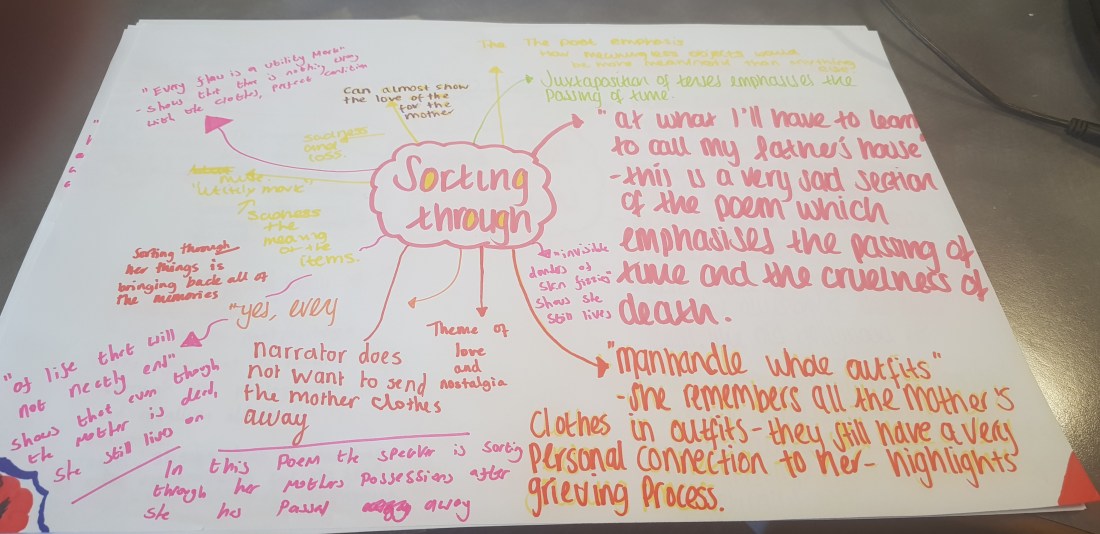 The The poet emphasis
How meaningless objects would
be more
Juxtaposition of tenses emphasises the
passing of time.
"Every flaw is a utility Mark"
- shows that there is nothing
with the clothes, perfect condition
Can almost show
the love of the
for the
mother
sadness
and
loss.
"utility mark"
Sadness
the
meaning
of the
items.
Sorting
through
"at what I'll have to learn
to call my father's house
- this is a very sad section
of the poem which
emphasises the passing of
time and the cruelness of
death.
"invisible
of
skin
shows she
still lives
Sorting through
her things is
bringing back all of
the memories
"yes, every
Theme of
love
and
nostalgia
narrator does
not want to send
the mother clothes
away
"of life that will
not neatly end"
shows that even though
the mother is dead,
she still lives on
"manhandle whole outfits"
- she remembers all the mother's
clothes in outfits - they still have a very
personal connection to her - highlights
grieving process.
In this Poem the speaker is sorting
through her mothers Possessions after
she has Passed away